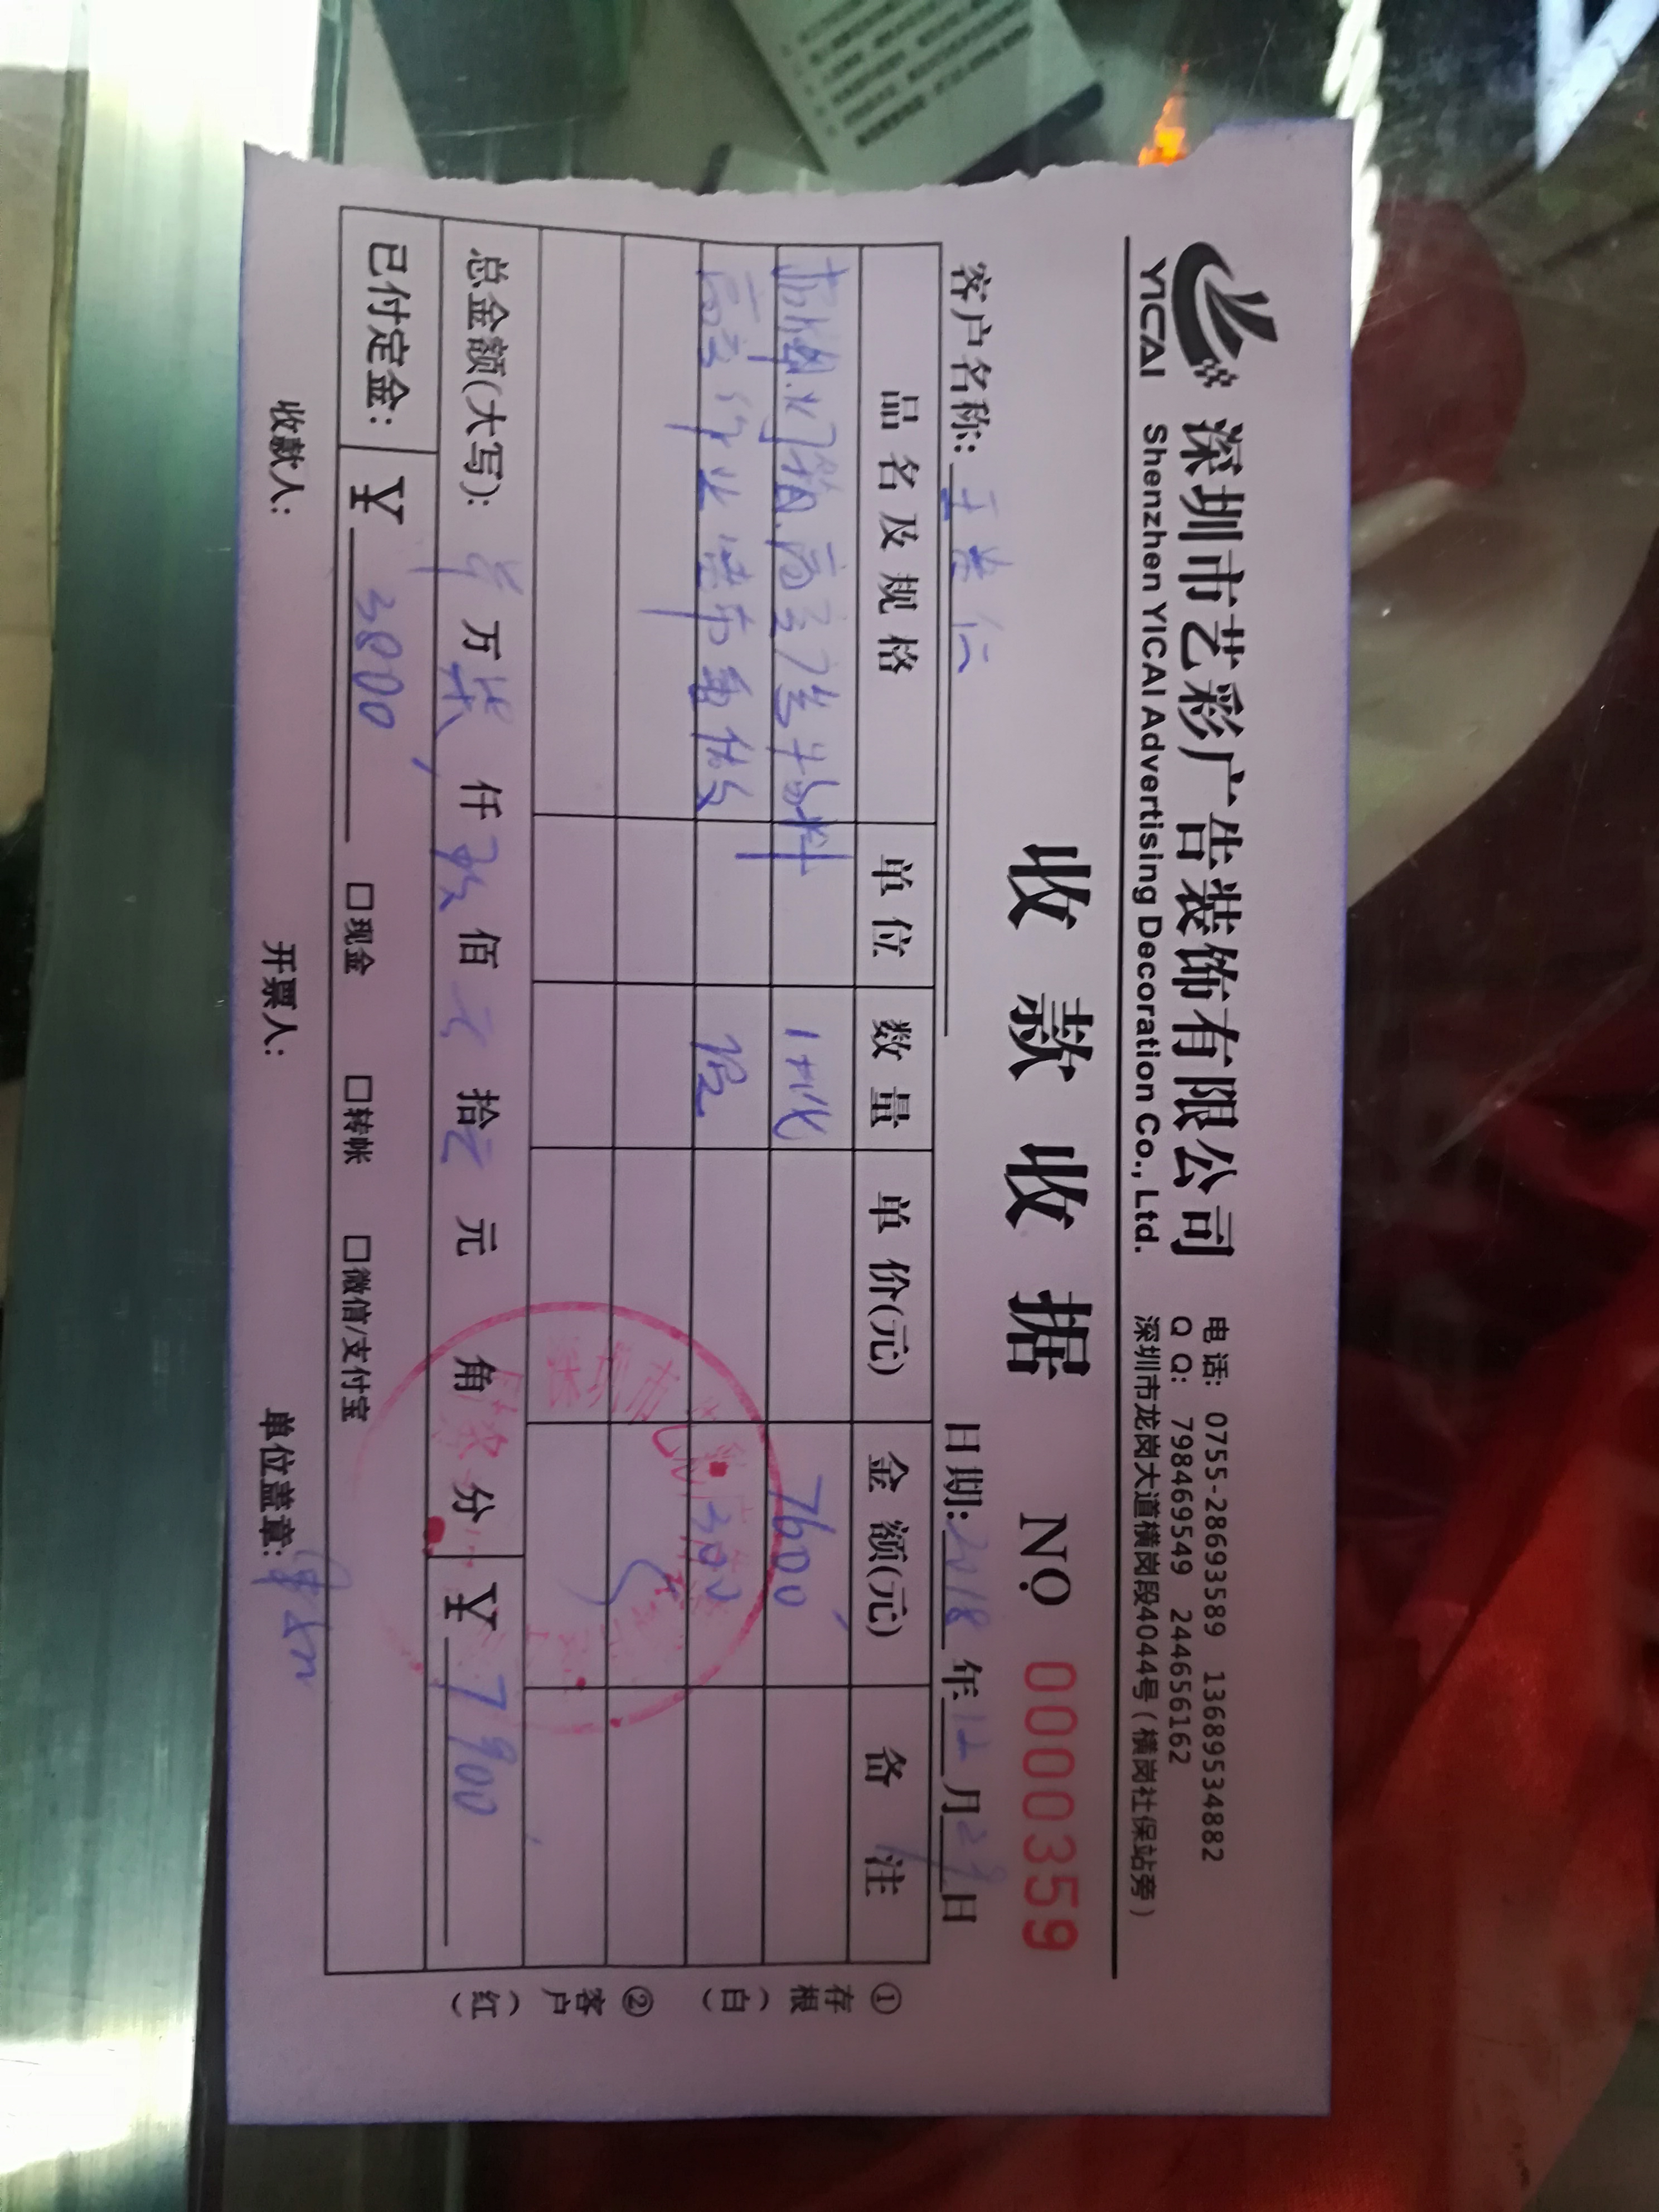 YICAI
深圳市艺彩广告装饰有限公司
Shenzhen YICAI Advertising Decoration Co., Ltd.
电 话: 0755-28693589 13689534882
Q Q: 798469549 244656162
深圳市龙岗大道横岗段4044号(横岗社保站旁)
收款收据 NO 0000359
客户名称: 王 仁 日期: 2018 年 12 月 29 日
品名及规格 单位 数量 单价(元) 金额(元) 备注
招牌.灯箱.高空广告 料 1批 7600
高空作业 布重做 300
总金额(大写): 万 柒 仟 玖 佰 拾 元 角 分 ¥ 7900
已付定金: ¥ 3800 □现金 □转帐 □微信/支付宝
收款人: 开票人: 单位盖章:
①存根(白) ②客户(红)
深圳市艺彩广告装